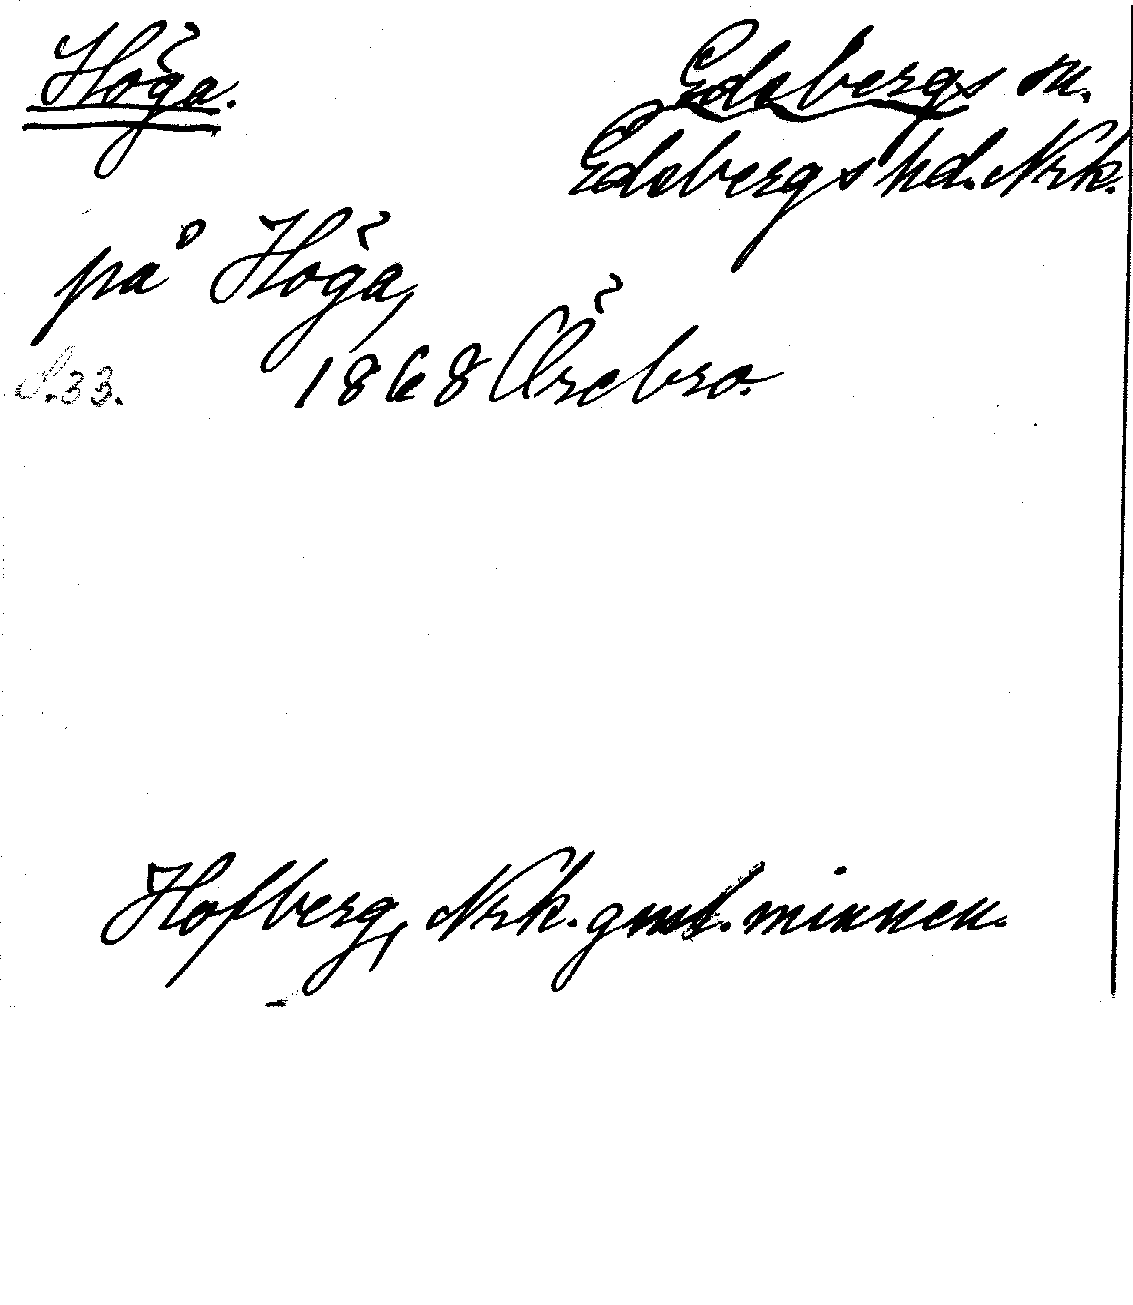 Höga.
Edsbergs sn.
Edsbergs hd. Nrk.
på Höga,
S. 33. 1868 Örebro.
Hofberg, Nrk. gml. minnen.